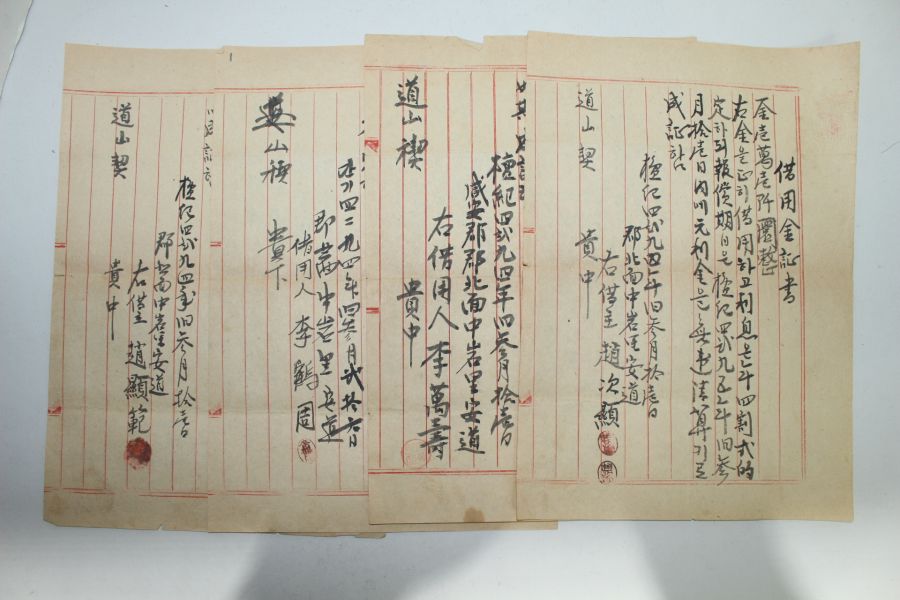 借用金証書
金壱萬壱阡圜整
右金을正히借用하고利息은年四割式的
定하되報償期日은檀紀四貳九五年旧参
月拾壱日內에元利金을無違淸算키로
成証함
檀紀四貳九四年旧参月拾壱日
郡北面中岩里安道
右借主 趙次顯
道山契 貴中
檀紀四貳九四年旧参月拾壱日
咸安郡郡北面中岩里安道
右借用人 李萬壽
道山稧 貴中
四二九四年四参月弐拾六日
郡北面中岩里安道
借用人 李鶴周
山稧 貴下
檀紀四貳九四年旧参月拾壱日
郡北面中岩里安道
右借主 趙顯範
道山契 貴中